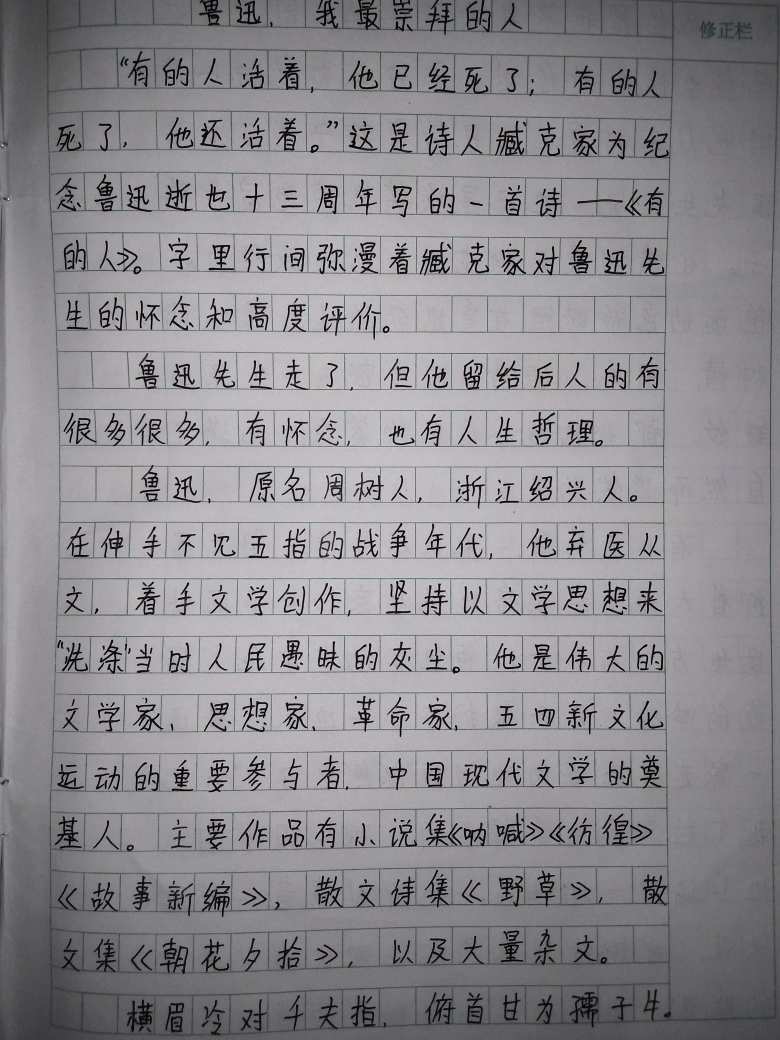 鲁迅，我最崇拜的人
修正栏
“有的人活着，他已经死了；有的人
死了，他还活着。”这是诗人臧克家为纪
念鲁迅逝也十三周年写的一首诗——《有
的人》。字里行间弥漫着臧克家对鲁迅先
生的怀念和高度评价。
鲁迅先生走了，但他留给后人的有
很多很多，有怀念，也有人生哲理。
鲁迅，原名周树人，浙江绍兴人。
在伸手不见五指的战争年代，他弃医从
文，着手文学创作，坚持以文学思想来
“洗涤”当时人民愚昧的灰尘。他是伟大的
文学家、思想家、革命家，五四新文化
运动的重要参与者，中国现代文学的奠
基人。主要作品有小说集《呐喊》《彷徨》
《故事新编》，散文诗集《野草》，散
文集《朝花夕拾》，以及大量杂文。
横眉冷对千夫指，俯首甘为孺子牛。